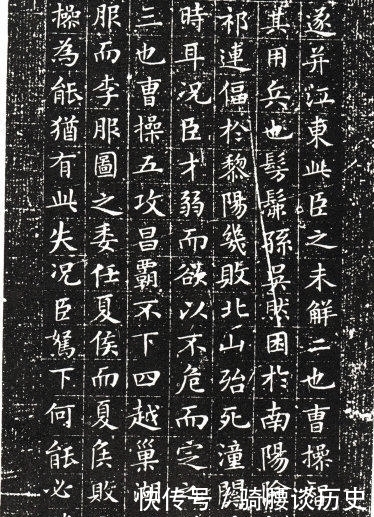 遂并江東此臣之未解二也曹操智
其用兵也髣髴孫吳然困於南陽險
祁連偪於黎陽幾敗北山殆死潼關
時耳况臣才弱而欲以不危而定之
三也曹操五攻昌霸不下四越巢湖
服而李服圖之委任夏侯而夏侯敗
操為能猶有此失况臣駑下何能必
快传号/骑腰谈历史